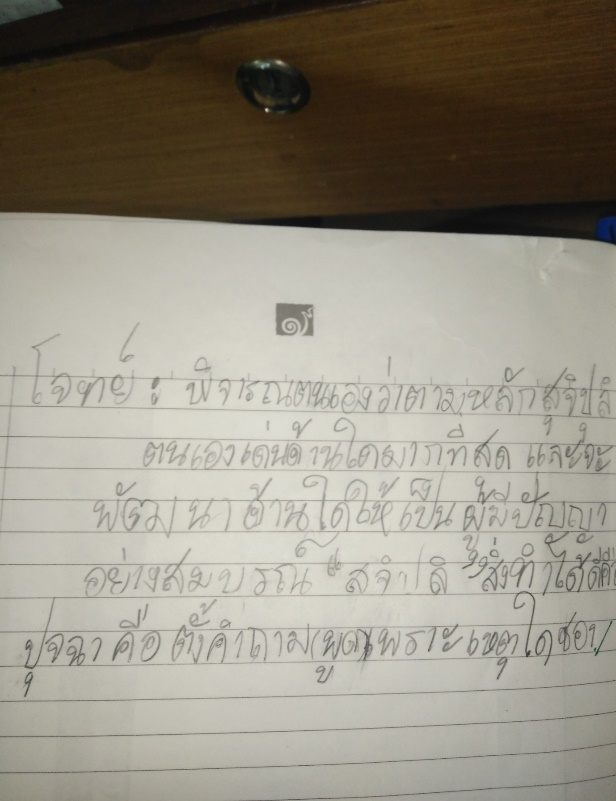 โจทย์ : พิจารณตนเองว่าตามหลักสุจิปุลิ
ตนเองเด่นด้านใดมากที่สุด และจะ
พัฒนาด้านใดให้เป็นผู้มีปัญญา
อย่างสมบรณ์ "สุจิปุลิ" สิ่งทำได้ดี
ปุจฉา คือ ตั้งคำถาม(พูด) เพราะเหตุใด ชอบ